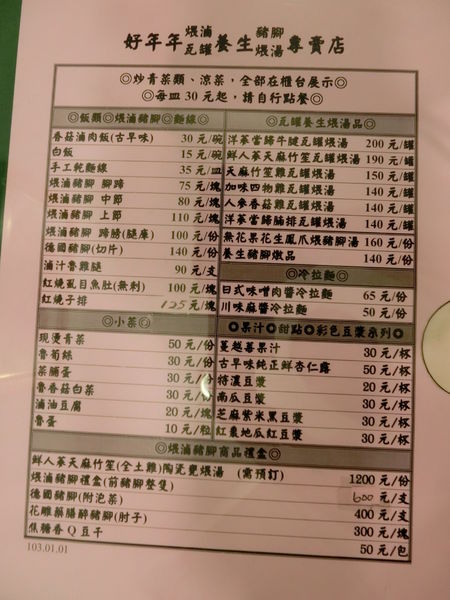 好年年 煨滷 瓦罐 養生 豬腳 煨湯 專賣店
◎炒青菜類、涼菜,全部在櫃台展示◎
◎每皿30元起,請自行點餐◎
◎飯類◎煨滷豬腳◎麵線◎
香菇滷肉飯(古早味) 30 元/碗
白飯 15 元/碗
手工乾麵線 35 元/皿
煨滷豬腳 腳蹄 75 元/塊
煨滷豬腳 中節 80 元/塊
煨滷豬腳 上節 110 元/塊
煨滷豬腳 蹄膀(腿庫) 100 元/份
德國豬腳(切片) 140 元/份
滷汁魯雞腿 90 元/支
紅燒虱目魚肚(無刺) 100 元/塊
紅燒子排 125 元/塊
◎小菜◎
現燙青菜 50 元/份
魯筍絲 30 元/份
菜脯蛋 30 元/份
魯香菇白菜 30 元/份
滷油豆腐 20 元/塊
魯蛋 10 元/粒
◎瓦罐養生煨湯品◎
洋蔘當歸牛腱瓦罐煨湯 200 元/罐
鮮人蔘天麻竹笙瓦罐煨湯 190 元/罐
天麻竹笙雞瓦罐煨湯 150 元/罐
加味四物雞瓦罐煨湯 140 元/罐
人參香菇雞瓦罐煨湯 140 元/罐
洋蔘當歸腩排瓦罐煨湯 140 元/罐
無花果花生鳳爪煨豬腳湯 160 元/份
養生豬腳燉品 140 元/份
◎冷拉麵◎
日式味噌肉醬冷拉麵 65 元/份
川味麻醬冷拉麵 50 元/份
◎果汁◎甜點◎彩色豆漿系列◎
蔓越莓果汁 30 元/杯
古早味純正鮮杏仁露 50 元/杯
特濃豆漿 20 元/杯
南瓜豆漿 30 元/杯
芝麻紫米黑豆漿 30 元/杯
紅棗地瓜紅豆漿 30 元/杯
◎煨滷豬腳商品禮盒◎
鮮人蔘天麻竹笙(全土雞)陶瓷甕煨湯 (需預訂) 1200 元/份
煨滷豬腳禮盒(前豬腳整隻) 600 元/支
德國豬腳(附泡菜) 400 元/支
花雕藥膳醉豬腳(肘子) 300 元/塊
焦糖香Q豆干 50 元/包
103.01.01